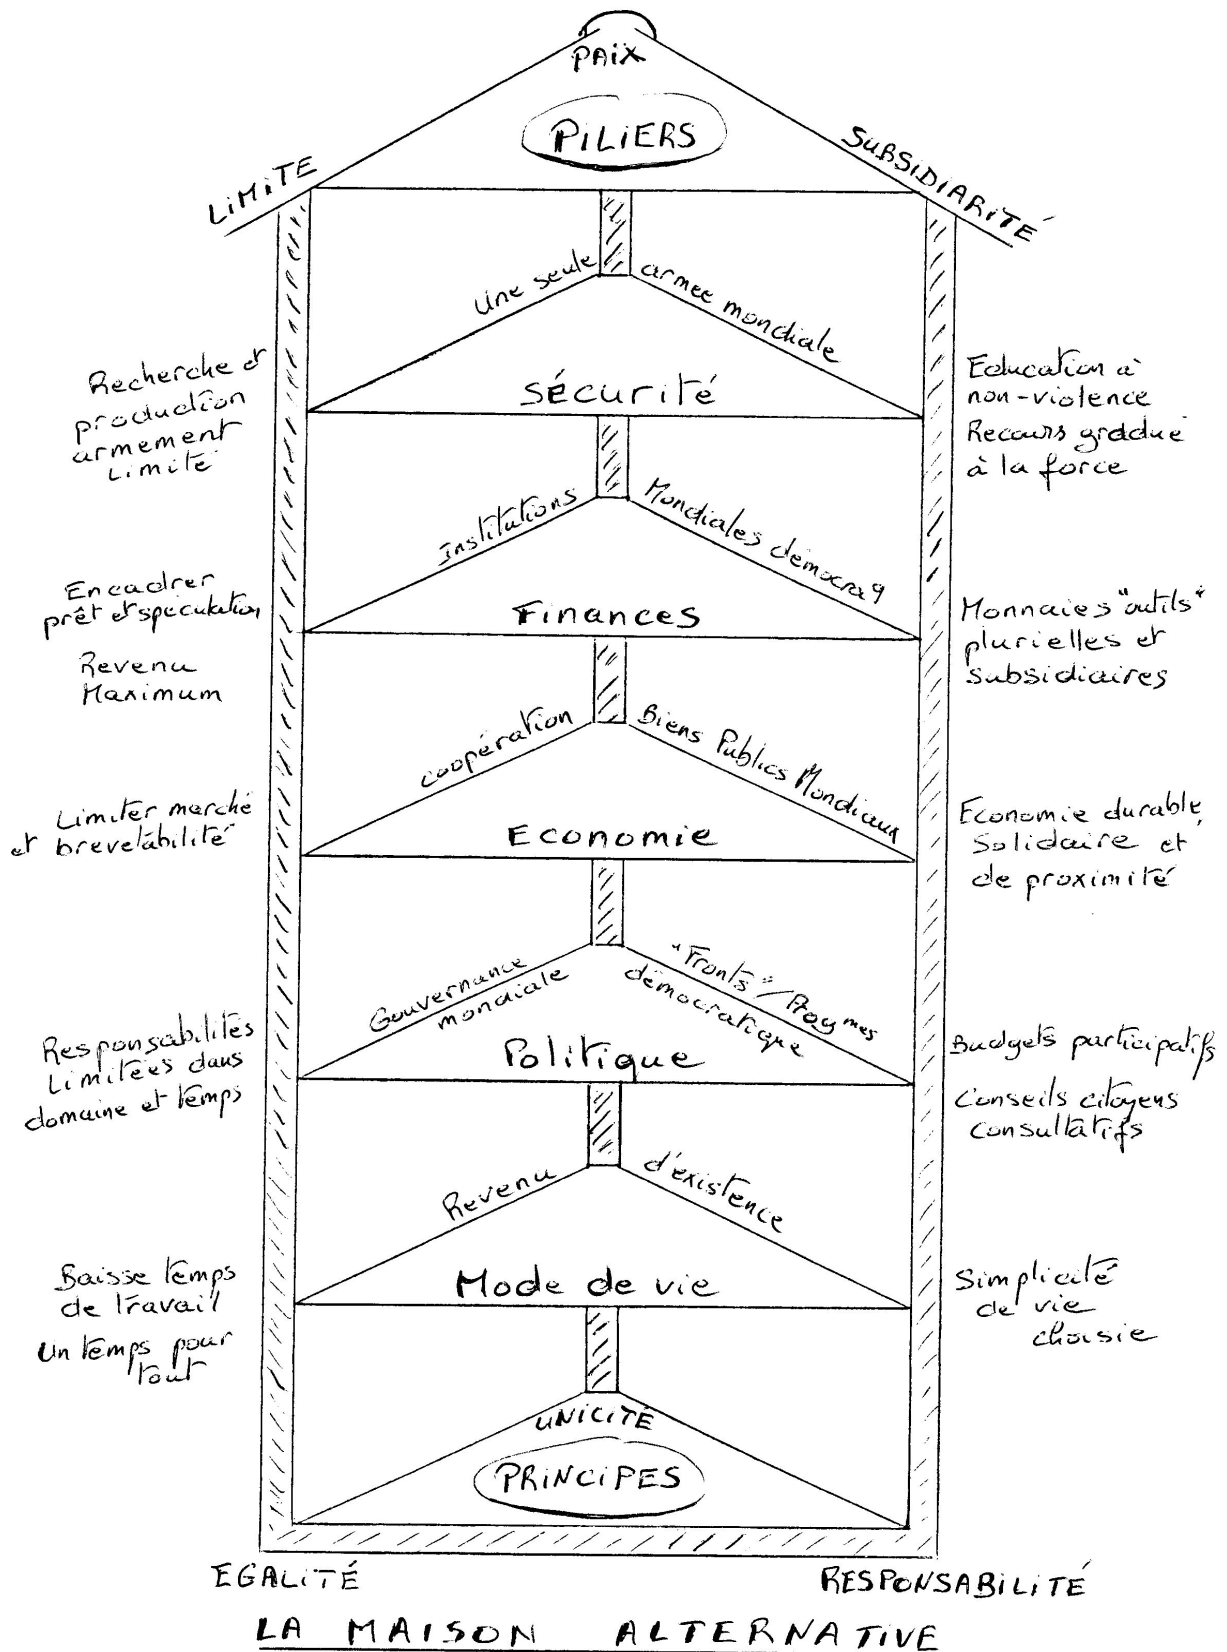 PAIX
PILIERS
LIMITE
SUBSIDIARITÉ
Une seule
armee mondiale
Recherche et
production
armement
Limité
SÉCURITÉ
Education à
non-violence
Recours gradué
à la force
Institutions
Mondiales démocraq
Encadrer
prêt et spéculation
Revenu
Maximum
Finances
Monnaies "outils"
plurielles et
subsidiaires
coopération
Biens Publics Mondiaux
Limiter marché
et brevetabilité
Economie
Economie durable,
Solidaire et
de proximité
Gouvernance
mondiale
"Fronts"/Progmes
démocratique
Responsabilités
Limitées dans
domaine et temps
Politique
Budgets participatifs
Conseils citoyens
consultatifs
Revenu
d'existence
Baisse temps
de travail
Un temps pour
tout
Mode de vie
Simplicité
de vie
choisie
UNICITÉ
PRINCIPES
EGALITÉ
RESPONSABILITÉ
LA MAISON ALTERNATIVE